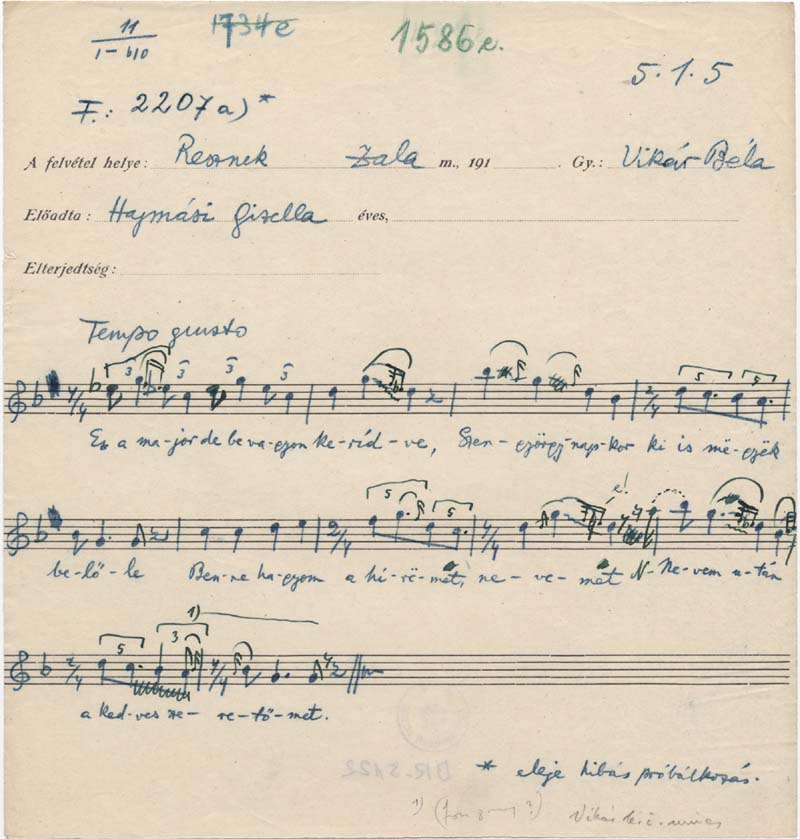 11
1-b10
1734e
1586e.
5.1.5
F.: 2207a)*
A felvétel helye: Resznek Zala m., 191 Gy.: Vikár Béla
Előadta: Hajmási Gizella éves,
Elterjedtség:
Tempo giusto
3 3 3 3 5 5
Ez a ma-jor de be va-gyon ke-ríd-ve, Szen-györgy-nap-kor ki is më-gyëk
5 5
be-lő-le Ben-ne ha-gyom a hí-rë-mët, ne-ve-mët N- Ne-vem u-tán
1)
5 3
a ked-ves sze-re-tő-met.
* eleje hibás próbálkozás.
1)